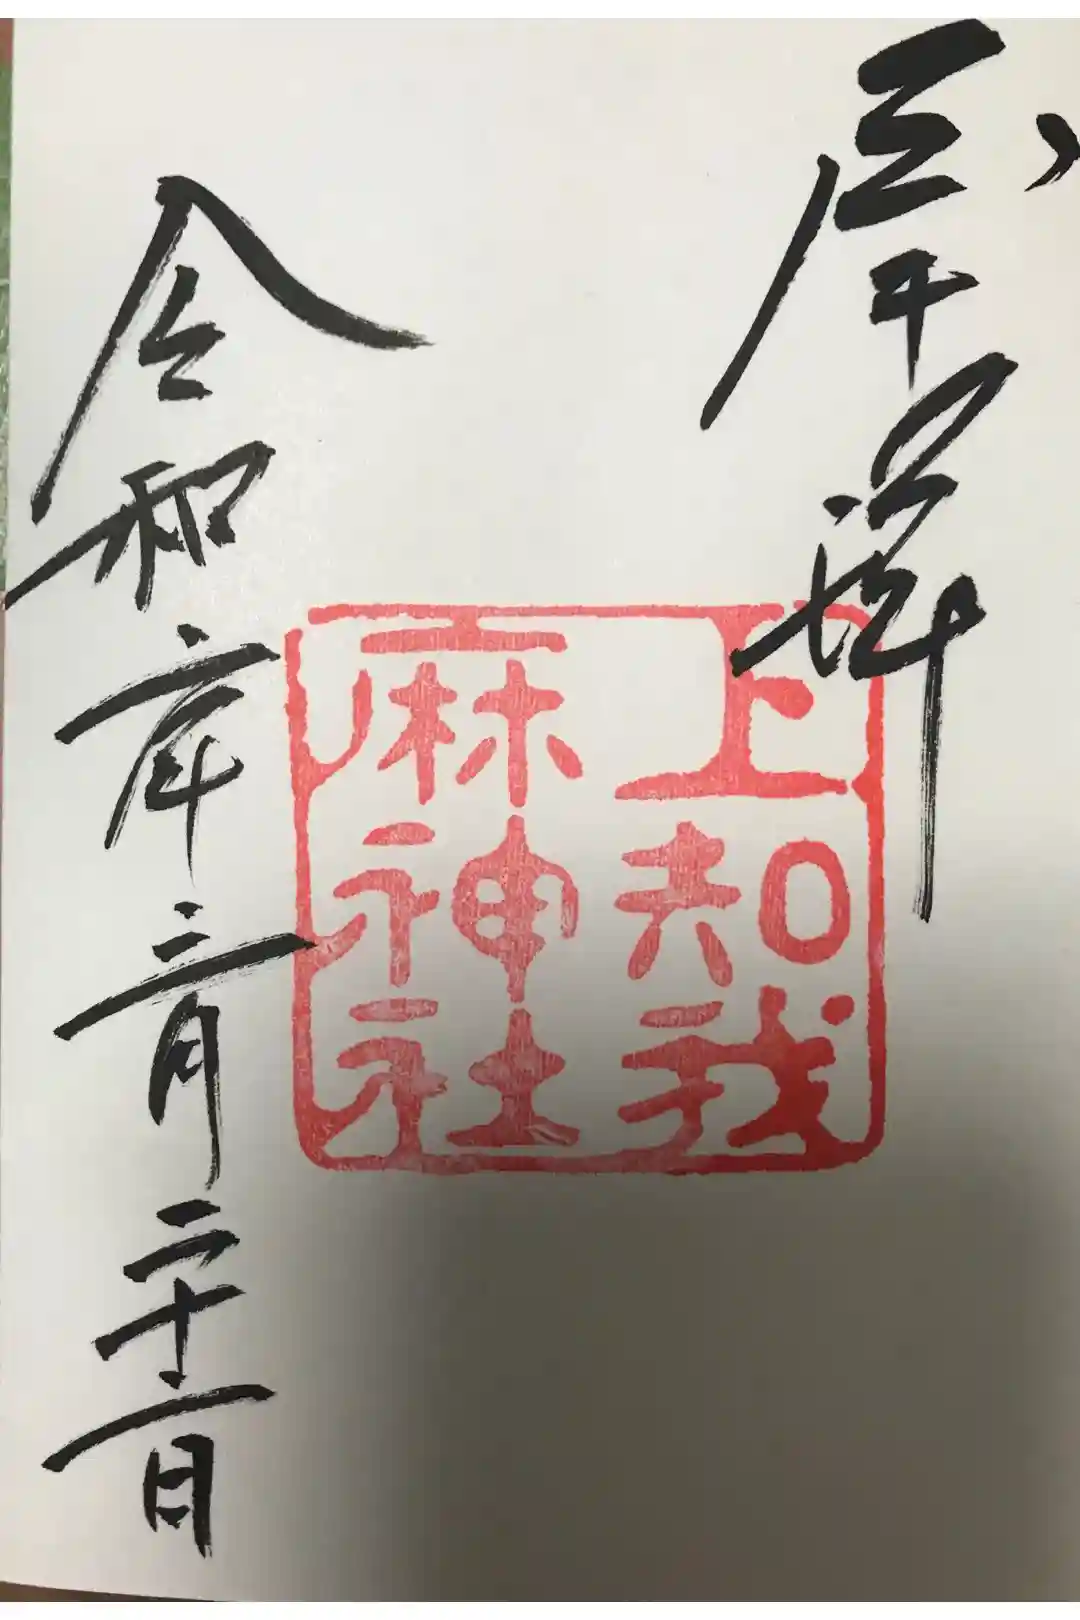 令和六年三月二十二日
上知我
麻神社